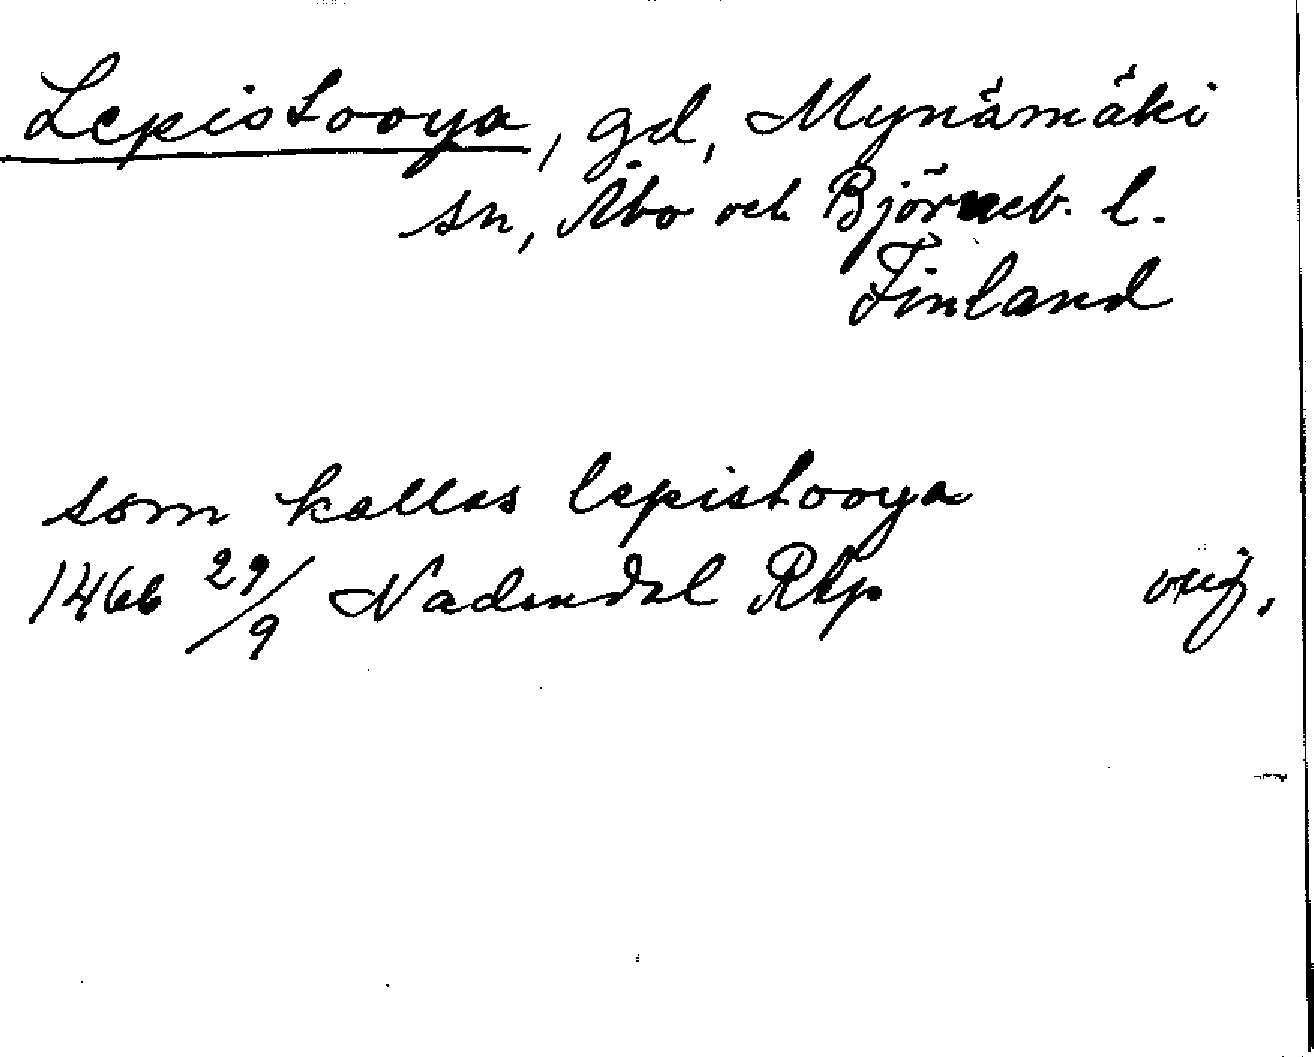 Lepistooya, gd, Mynämäki
sn, Åbo och Björneb. l.
Finland
som kallas lepistooya
1466 29/9 Nådendal Rkp orig.